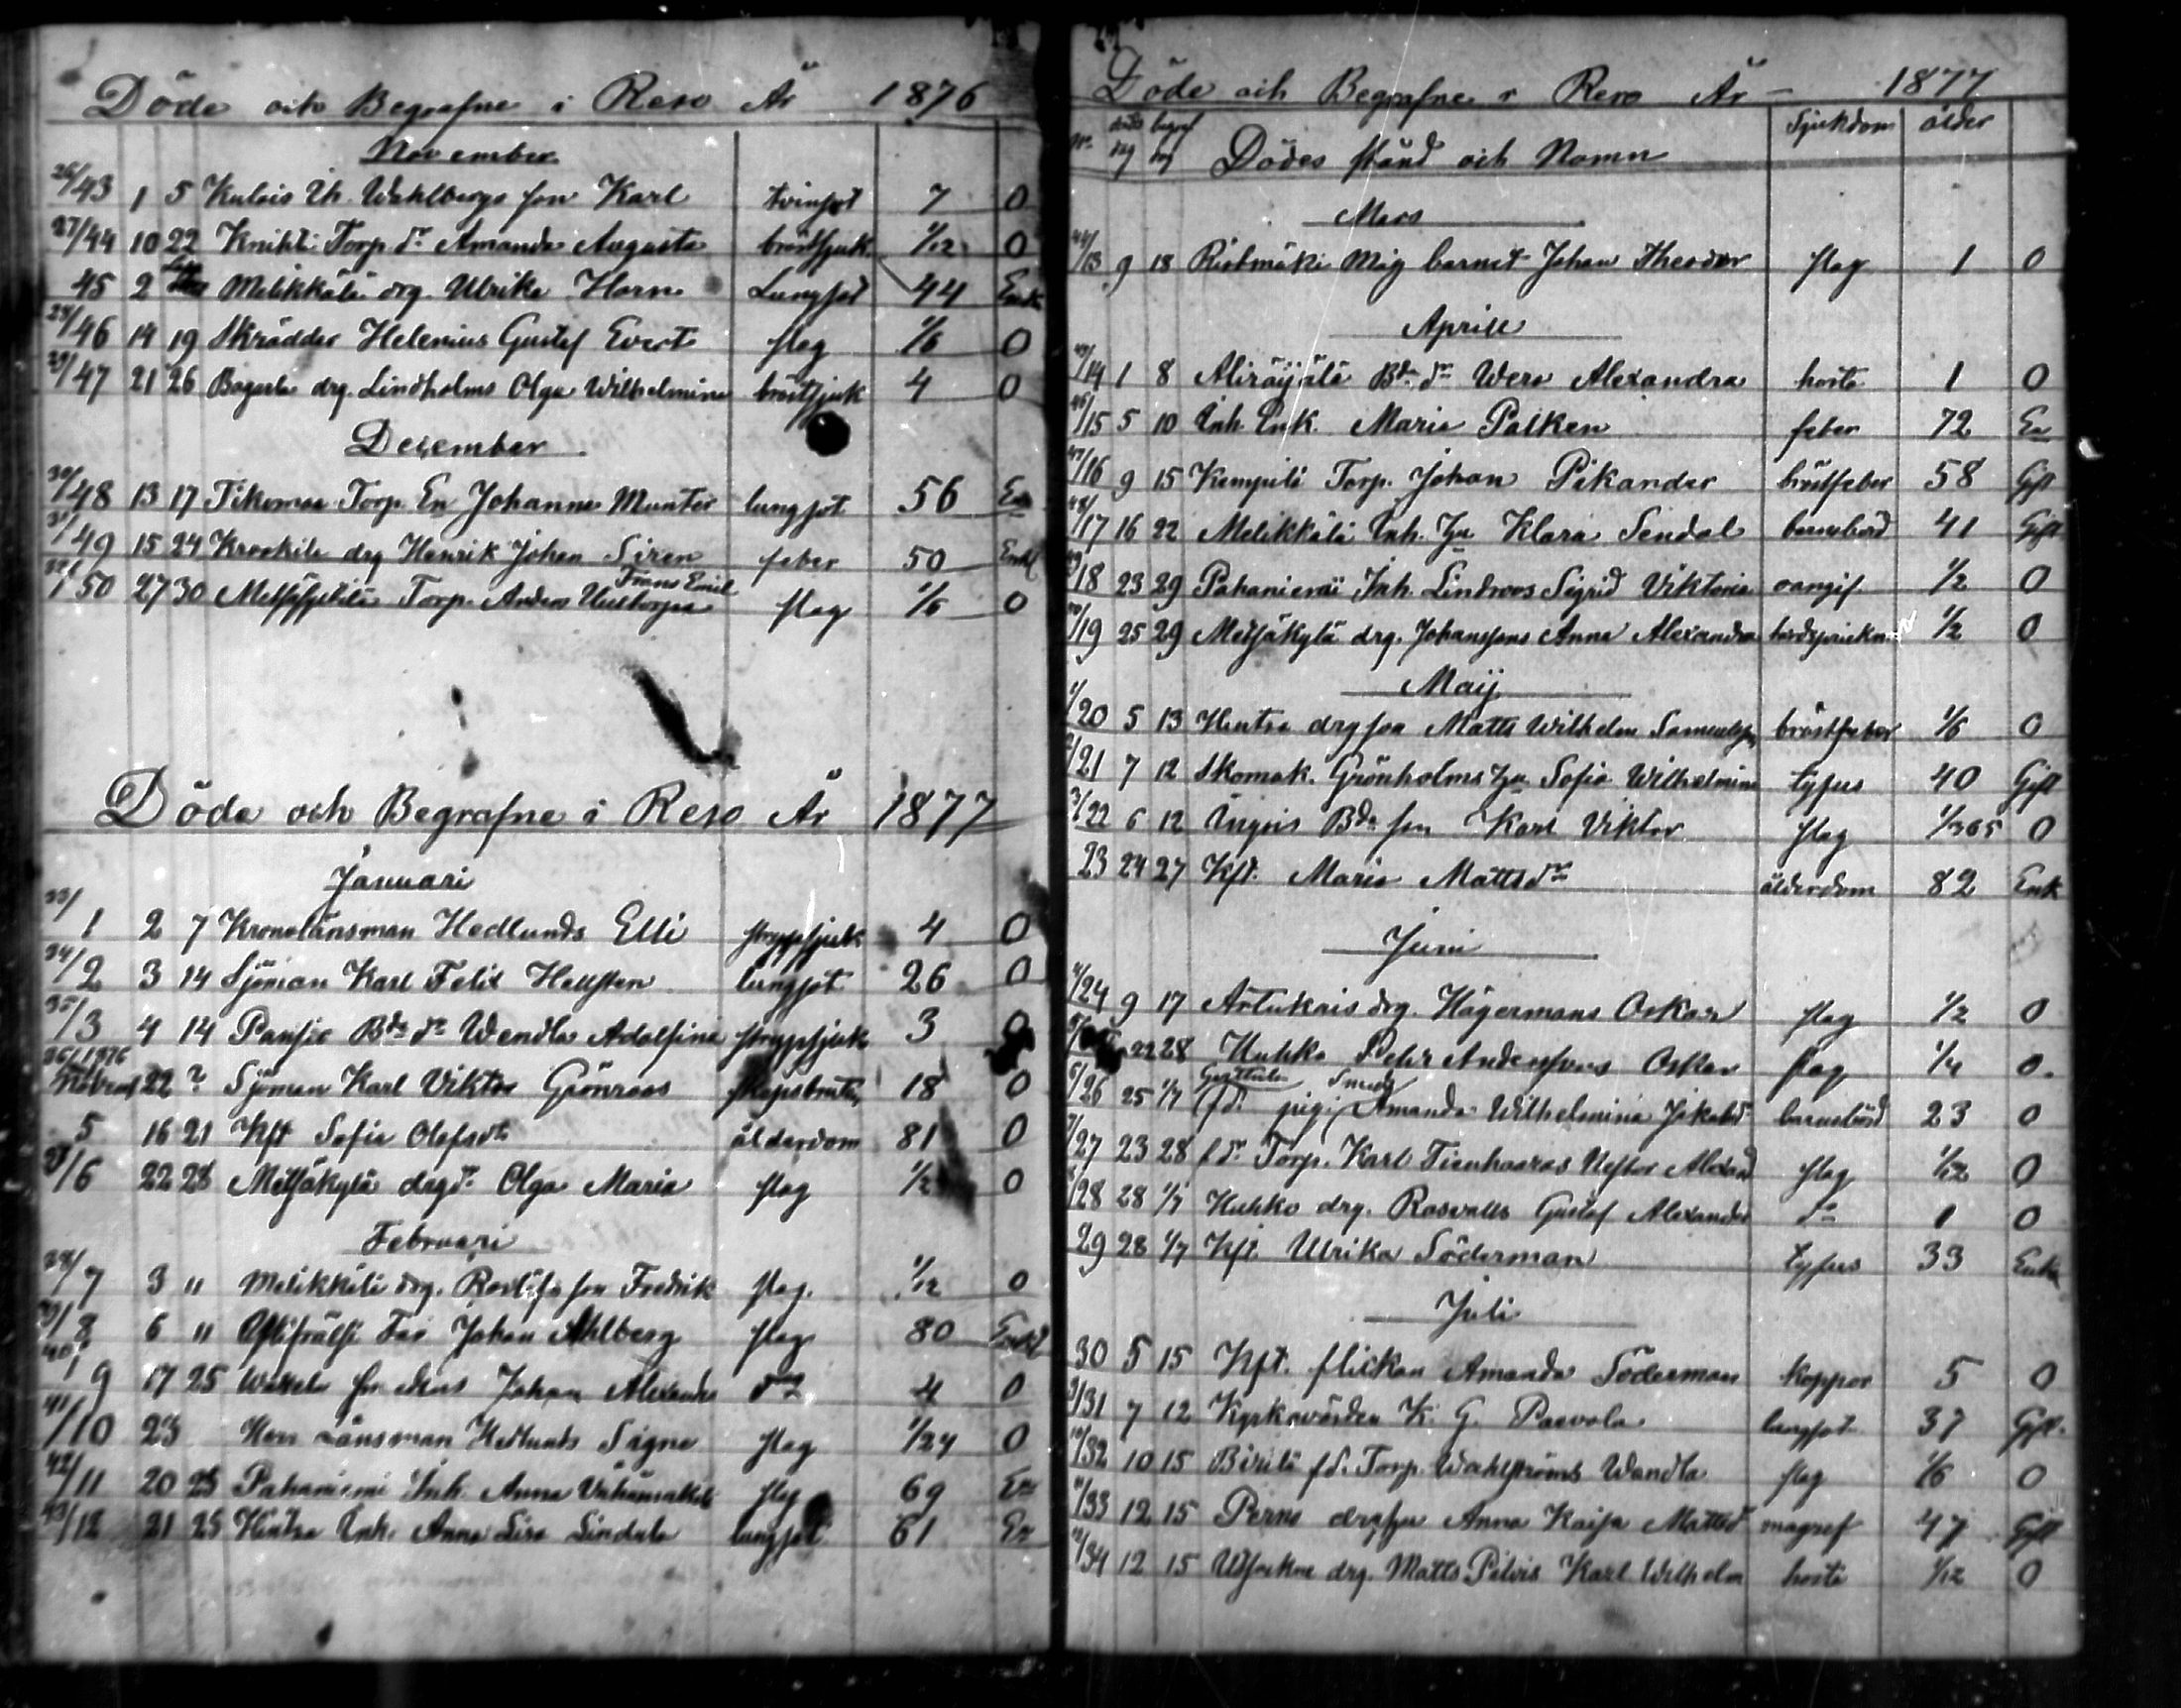 Döde och Begrafne i Reso År 1876
November
26/43 1 5 Kulois Th. Wahlbergs son Karl tvinsot 7 0
27/44 10 22 Knihti Torp. dr Amanda Augusta bröstsjuk 1/12 0
45 2 Melikkälä drg. Ulrika Horn Lungsot 44 Enk
28/46 14 19 Skrädder Helenius Gustaf Evert slag 1/6 0
29/47 21 26 drg. Lindholms Olga Wilhelmina bröstsjuk 4 0
December
30/48 13 17 Torp. En Johanna Munter lungsot 56 En
31/49 15 24 Krookila drg Henrik Johan Siren feber 50 Enkl
Frans Emil
32/50 27 30 Torp. Anders slag 1/6 0
Döde och Begrafne i Reso År 1877
Januari
33/1 2 7 Kronolänsman Hedlunds Elli strypsjuk 4 0
34/2 3 14 Sjöman Karl Felix Hellsten lungsot 26 0
35/3 4 14 Pansio Bde dr Wendla Adolfina strypsjuk 3 0
36/1876 22 ? Sjöman Karl Viktor Grönroos skepsbrutn 18 0
5 16 21 Kft Sofia Olofsdr ålderdom 81 0
37/6 22 28 Metsäkylä drg dr Olga Maria slag 1/2 0
Februari
38/7 3 " Melikkälä drg. son Fredrik slag 1/12 0
39/8 6 " Far Johan Ahlberg slag 80 Enkl
40/9 17 25 Johan Alexander do 4 0
41/10 23 länsman Hedlunds Signe slag 1/24 0
42/11 20 25 Pahaniemi Inh. Anna slag 69 En
43/12 21 25 Hintsa Inh. Anna Lisa Lindala lungsot 61 En
Döde och Begrafne i Reso År - 1877
No döds dag begraf dag Dödes stånd och Namn Sjukdom ålder
Mars
44/13 9 18 Ristimäki Måg barnet Johan Theodor slag 1 0
Aprill
45/14 1 8 Bde dr Wera Alexandra hosta 1 0
46/15 5 10 Inh. Enk. Maria Palken feber 72 En
47/16 9 15 Torp. Johan Pikander bröstfeber 58 Gift
48/17 16 22 Melikkälä Inh. hu Klara Sendal barnsbörd 41 Gift
49/18 23 29 Pahaniemi Inh. Lindroos Sigrid Viktoria oangif. 1/2 0
50/19 25 29 Metsäkylä drg. Johanssons Anna Alexandra 1/2 0
Maij
1/20 5 13 Hintsa drg son Matts Wilhelm bröstfeber 1/6 0
2/21 7 12 Skomak. Grönholms hu Sofia Wilhelmina tyfus 40 Gift
3/22 6 12 Bde son Karl Viktor slag 1/365 0
23 24 27 Kft. Maria Matts dr ålderdom 82 Enk
Juni
4/24 9 17 Artukais drg. Hägermans Oskar slag 1/2 0
22 28 Huhko Anderssons Oskar slag 1/4 0.
6/26 25 1/7 pig. Amanda Wilhelmina Jakobsd barnsbörd 23 0
7/27 23 28 Torp. Karl Tienhaaras Nestor Alexand slag 1/12 0
8/28 28 1/7 Huhko drg. Rosvalls Gustaf Alexander do 1 0
29 28 1/7 Kft Ulrika Söderman tyfus 33 Enka
Juli
30 5 15 Kft. flickan Amanda Söderman koppor 5 0
9/31 7 12 Kyrkovärden K. G. Paavola lungsot 37 Gift.
10/32 10 15 Torp. Wahlströms Wendla slag 1/6 0
11/33 12 15 Perno drg hu Anna Kaisa Mattsd magref 47 Gift
12/34 12 15 drg. Matts Karl Wilhelm hosta 1/12 0